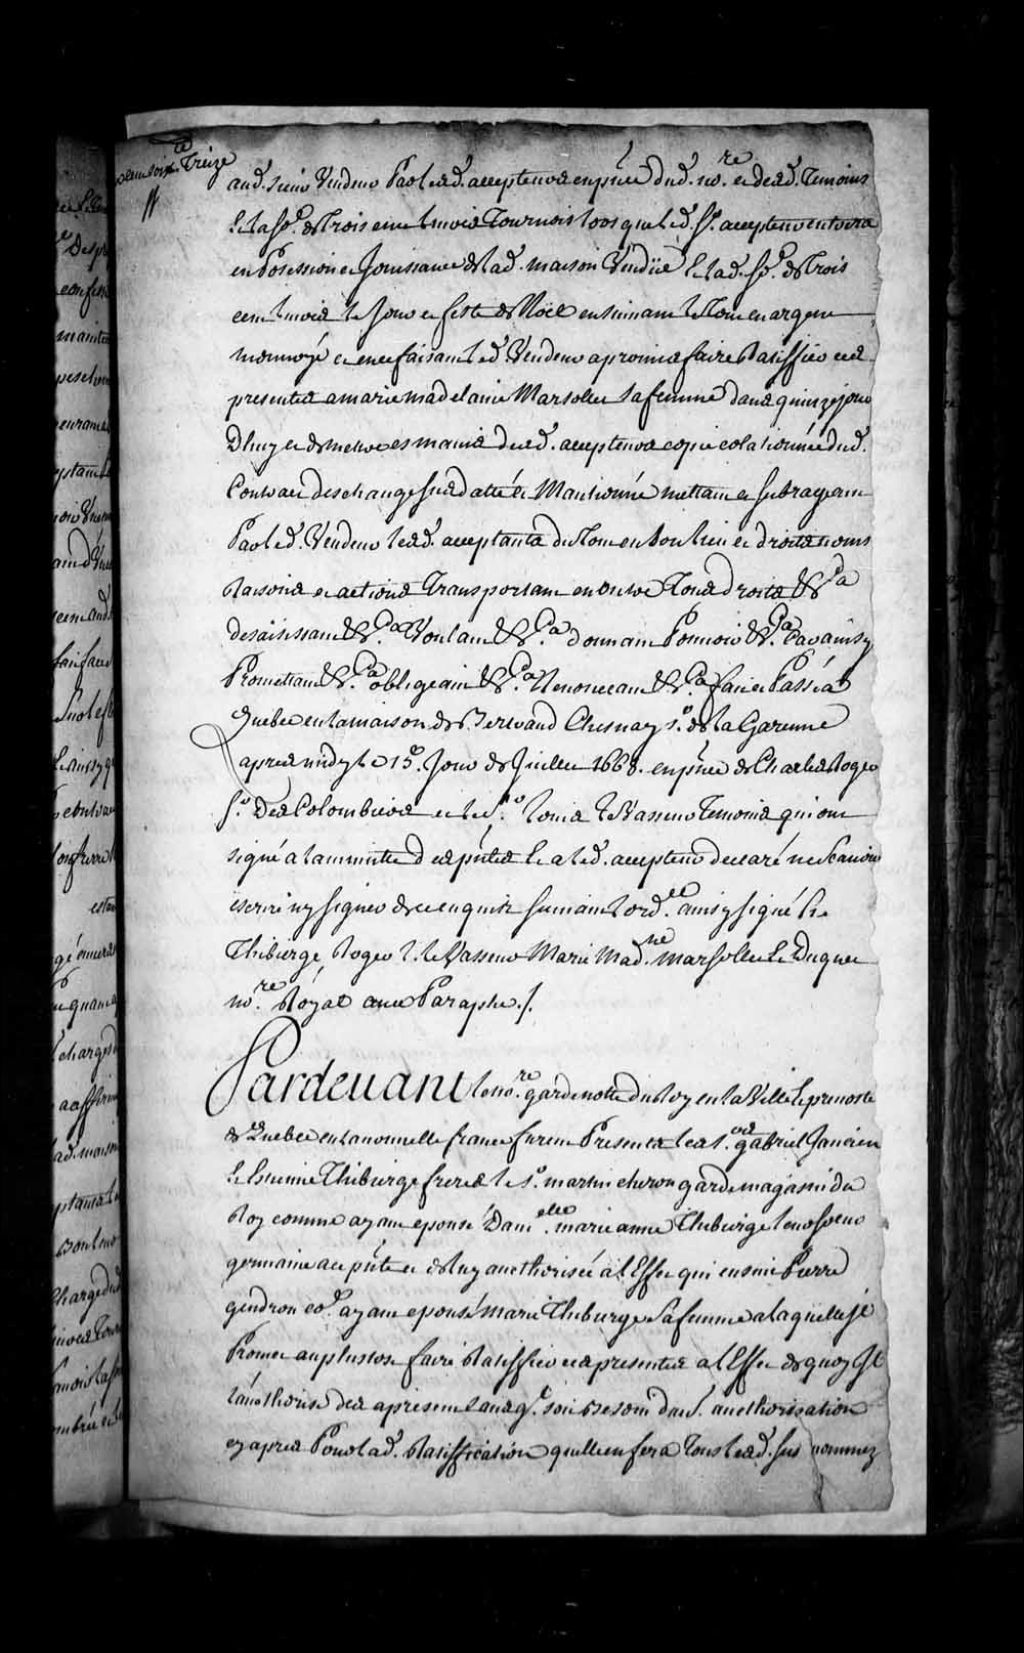 treize
aud. sieur Vendeur Par led. accepteurs en pnce dud. no.re et desd. Temoins
Et la so.e de Trois cens livres Tournois lors que led. Sr. accepteur entrera
en Posession et Jouissance de lad. maison Vendüe Et lad. so.e de Trois
cens livres le Jour et feste de Noël ensuivant le Tout en argent
monnoyé et en ce faisant led. Vendeur a promis faire Ratiffier ces
presentes a marie madelaine Marsollet sa femme dans quinze jours
D'huy et de mettre es mains desd. accepteurs copie colationnée dud.
Contract deschange sus datté et Mantionné mettant et subrogeant
Par led. Vendeur lesd. acceptants du Tout en son lieu et droits noms
Raisons et actions Transportant en outre Tous droits &ca
desaisissant &ca Voulant &ca donnant Pouvoir &ca Car ainsy
Promettant &ca obligeant &ca Renonceant &ca fait et Passé a
Quebec en la maison de Bertrand Chesnay sr. de la Garenne
apres midy le 15e. Jour de Juillet 1668. en pnce de Charles Roger
sr. Des Colombiers et le sr. Louis le Vasseur Temoins qui ont
signé a la minutte des pntes Et a led. accepteur declaré ne Scavoir
escrire ny signer de ce enquis suivant lord.ce ainsy signé
Thibierge, Roger L. le Vasseur Marie Mad.ne Marsollet Et Duquet
no.re Royal avec Paraphe ./.
Pardevant le no.re gardenotte du Roy en la Ville Et prevosté
de Quebec en la nouvelle france furent Presents les s.rs gabriel Jancien
Et Estienne Thibierge freres le sr. martin cheron garde magasin du
Roy comme ayant epousé Dam.elle marie anne Thibierge leur soeur
germaine a ce pnte et de luy authorisée a l'Effet qui ensuit Pierre
gendron co.e ayant epousé marie Thibierge sa femme a laquelle il
Promet au plustost faire Ratiffier ces presentes a l'Effet de quoy Il
lauthorise des apresent sans qu.l soit besoin dau.e authorisation
cy apres Pour lad. Ratiffication quelle en fera Tous lesd. sus nommez